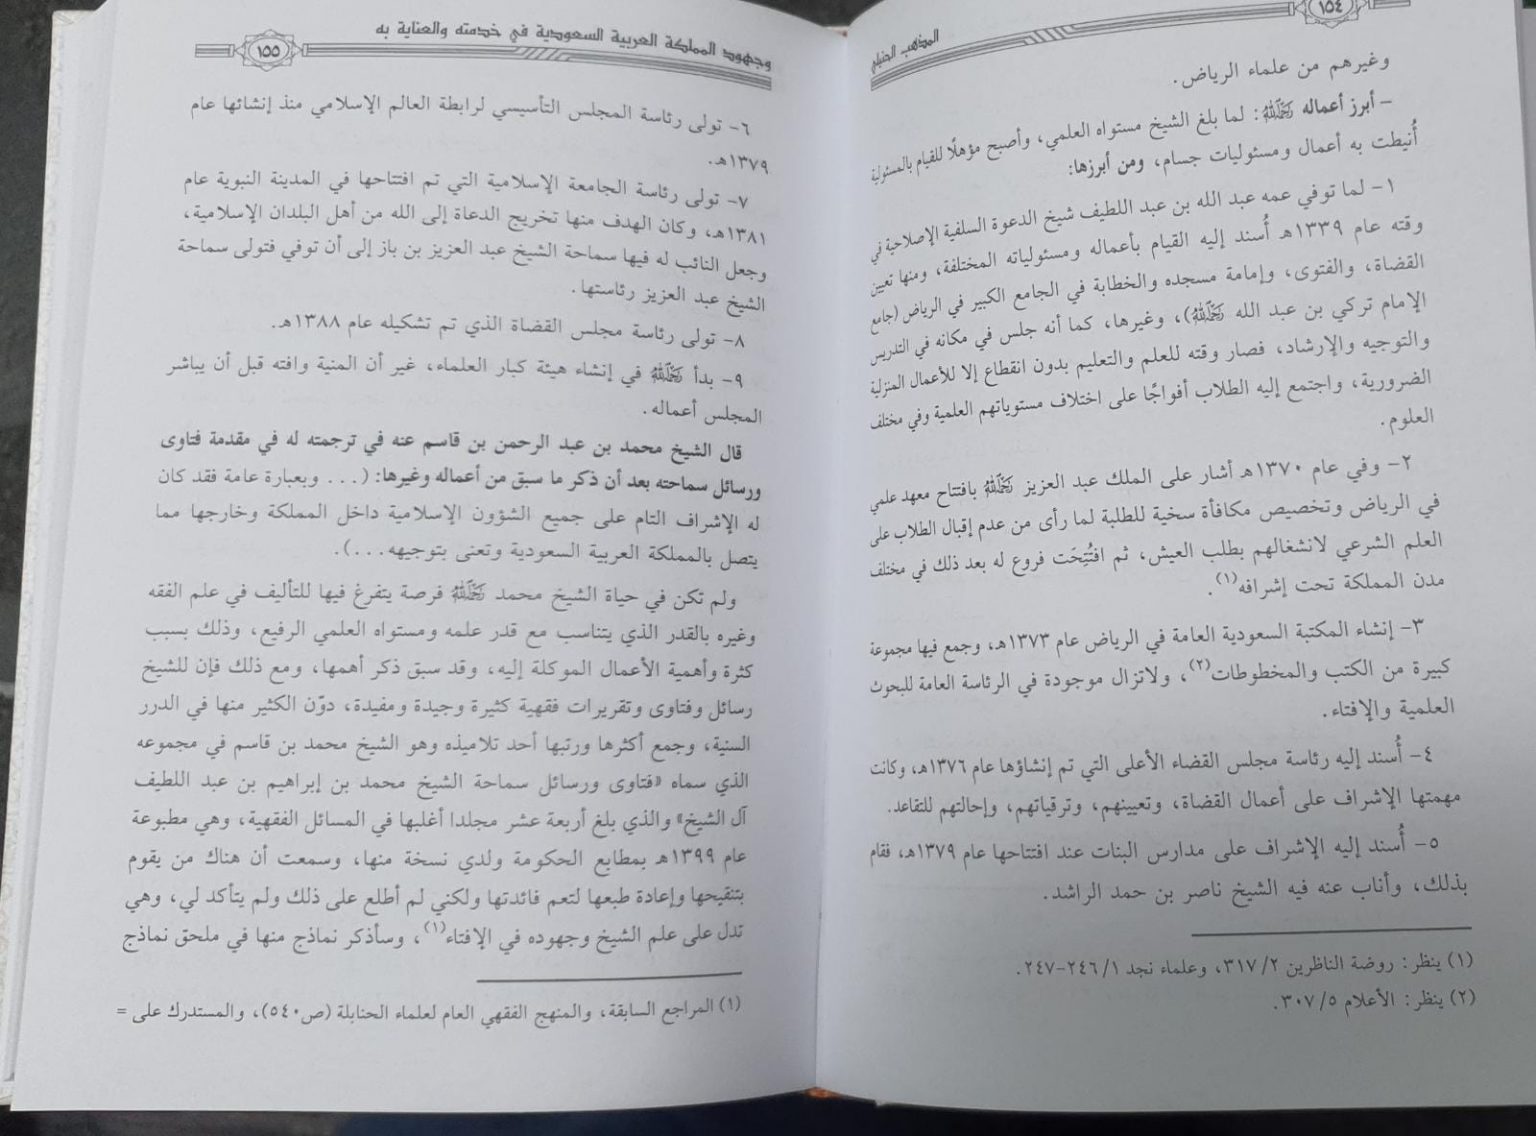 ١٥٤
المذهب الحنبلي
وغيرهم من علماء الرياض.
- أبرز أعماله رَحِمَهُ اللَّهُ: لما بلغ الشيخ مستواه العلمي، وأصبح مؤهلًا للقيام بالمسئولية
أُنيطت به أعمال ومسئوليات جسام، ومن أبرزها:
١- لما توفي عمه عبد الله بن عبد اللطيف شيخ الدعوة السلفية الإصلاحية في
وقته عام ١٣٣٩هـ أُسند إليه القيام بأعماله ومسئولياته المختلفة، ومنها تعيين
القضاة، والفتوى، وإمامة مسجده والخطابة في الجامع الكبير في الرياض (جامع
الإمام تركي بن عبد الله رَحِمَهُ اللَّهُ)، وغيرها، كما أنه جلس في مكانه في التدريس
والتوجيه والإرشاد، فصار وقته للعلم والتعليم بدون انقطاع إلا للأعمال المنزلية
الضرورية، واجتمع إليه الطلاب أفواجًا على اختلاف مستوياتهم العلمية وفي مختلف
العلوم.
٢- وفي عام ١٣٧٠هـ أشار على الملك عبد العزيز رَحِمَهُ اللَّهُ بافتتاح معهد علمي
في الرياض وتخصيص مكافأة سخية للطلبة لما رأى من عدم إقبال الطلاب على
العلم الشرعي لانشغالهم بطلب العيش، ثم افتُتِحَت فروع له بعد ذلك في مختلف
مدن المملكة تحت إشرافه(١).
٣- إنشاء المكتبة السعودية العامة في الرياض عام ١٣٧٣هـ، وجمع فيها مجموعة
كبيرة من الكتب والمخطوطات(٢)، ولاتزال موجودة في الرئاسة العامة للبحوث
العلمية والإفتاء.
٤- أُسند إليه رئاسة مجلس القضاء الأعلى التي تم إنشاؤها عام ١٣٧٦هـ، وكانت
مهمتها الإشراف على أعمال القضاة، وتعيينهم، وترقياتهم، وإحالتهم للتقاعد.
٥- أُسند إليه الإشراف على مدارس البنات عند افتتاحها عام ١٣٧٩هـ، فقام
بذلك، وأناب عنه فيه الشيخ ناصر بن حمد الراشد.
(١) ينظر: روضة الناظرين ٣١٧/٢، وعلماء نجد ٢٤٦/١-٢٤٧.
(٢) ينظر: الأعلام ٣٠٧/٥.
وجهود المملكة العربية السعودية في خدمته والعناية به
١٥٥
٦- تولى رئاسة المجلس التأسيسي لرابطة العالم الإسلامي منذ إنشائها عام
١٣٧٩هـ.
٧- تولى رئاسة الجامعة الإسلامية التي تم افتتاحها في المدينة النبوية عام
١٣٨١هـ، وكان الهدف منها تخريج الدعاة إلى الله من أهل البلدان الإسلامية،
وجعل النائب له فيها سماحة الشيخ عبد العزيز بن باز إلى أن توفي فتولى سماحة
الشيخ عبد العزيز رئاستها.
٨- تولى رئاسة مجلس القضاة الذي تم تشكيله عام ١٣٨٨هـ.
٩- بدأ رَحِمَهُ اللَّهُ في إنشاء هيئة كبار العلماء، غير أن المنية وافته قبل أن يباشر
المجلس أعماله.
قال الشيخ محمد بن عبد الرحمن بن قاسم عنه في ترجمته له في مقدمة فتاوى
ورسائل سماحته بعد أن ذكر ما سبق من أعماله وغيرها: (... وبعبارة عامة فقد كان
له الإشراف التام على جميع الشؤون الإسلامية داخل المملكة وخارجها مما
يتصل بالمملكة العربية السعودية وتعنى بتوجيهه...).
ولم تكن في حياة الشيخ محمد رَحِمَهُ اللَّهُ فرصة يتفرغ فيها للتأليف في علم الفقه
وغيره بالقدر الذي يتناسب مع قدر علمه ومستواه العلمي الرفيع، وذلك بسبب
كثرة وأهمية الأعمال الموكلة إليه، وقد سبق ذكر أهمها، ومع ذلك فإن للشيخ
رسائل وفتاوى وتقريرات فقهية كثيرة وجيدة ومفيدة، دوّن الكثير منها في الدرر
السنية، وجمع أكثرها ورتبها أحد تلاميذه وهو الشيخ محمد بن قاسم في مجموعه
الذي سماه «فتاوى ورسائل سماحة الشيخ محمد بن إبراهيم بن عبد اللطيف
آل الشيخ» والذي بلغ أربعة عشر مجلدا أغلبها في المسائل الفقهية، وهي مطبوعة
عام ١٣٩٩هـ بمطابع الحكومة ولدي نسخة منها، وسمعت أن هناك من يقوم
بتنقيحها وإعادة طبعها لتعم فائدتها ولكني لم أطلع على ذلك ولم يتأكد لي، وهي
تدل على علم الشيخ وجهوده في الإفتاء(١)، وسأذكر نماذج منها في ملحق نماذج
(١) المراجع السابقة، والمنهج الفقهي العام لعلماء الحنابلة (ص٥٤٠)، والمستدرك على =